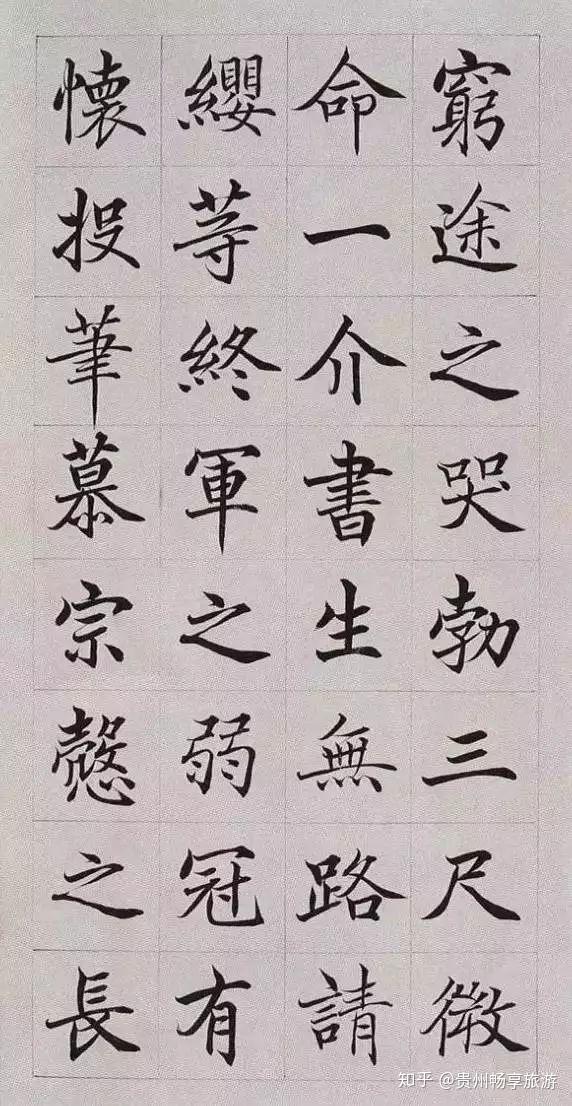 窮途之哭勃三尺微
命一介書生無路請
纓等終軍之弱冠有
懐投筆慕宗慤之長
知乎 @贵州畅享旅游